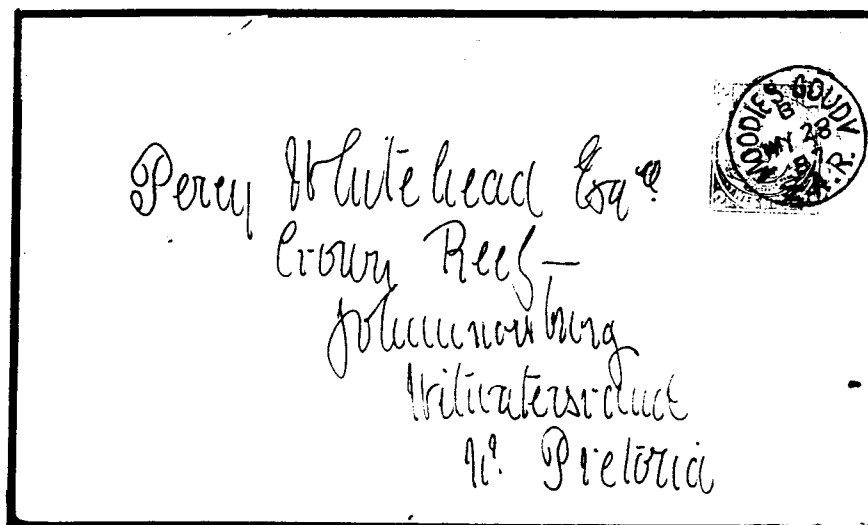 MOODIES GOUDV.
B
MY 28
87
Z.A.R.
Percy Whitehead Esqre
Crown Reef—
Johannesburg
Witwatersrand
Nr. Pretoria